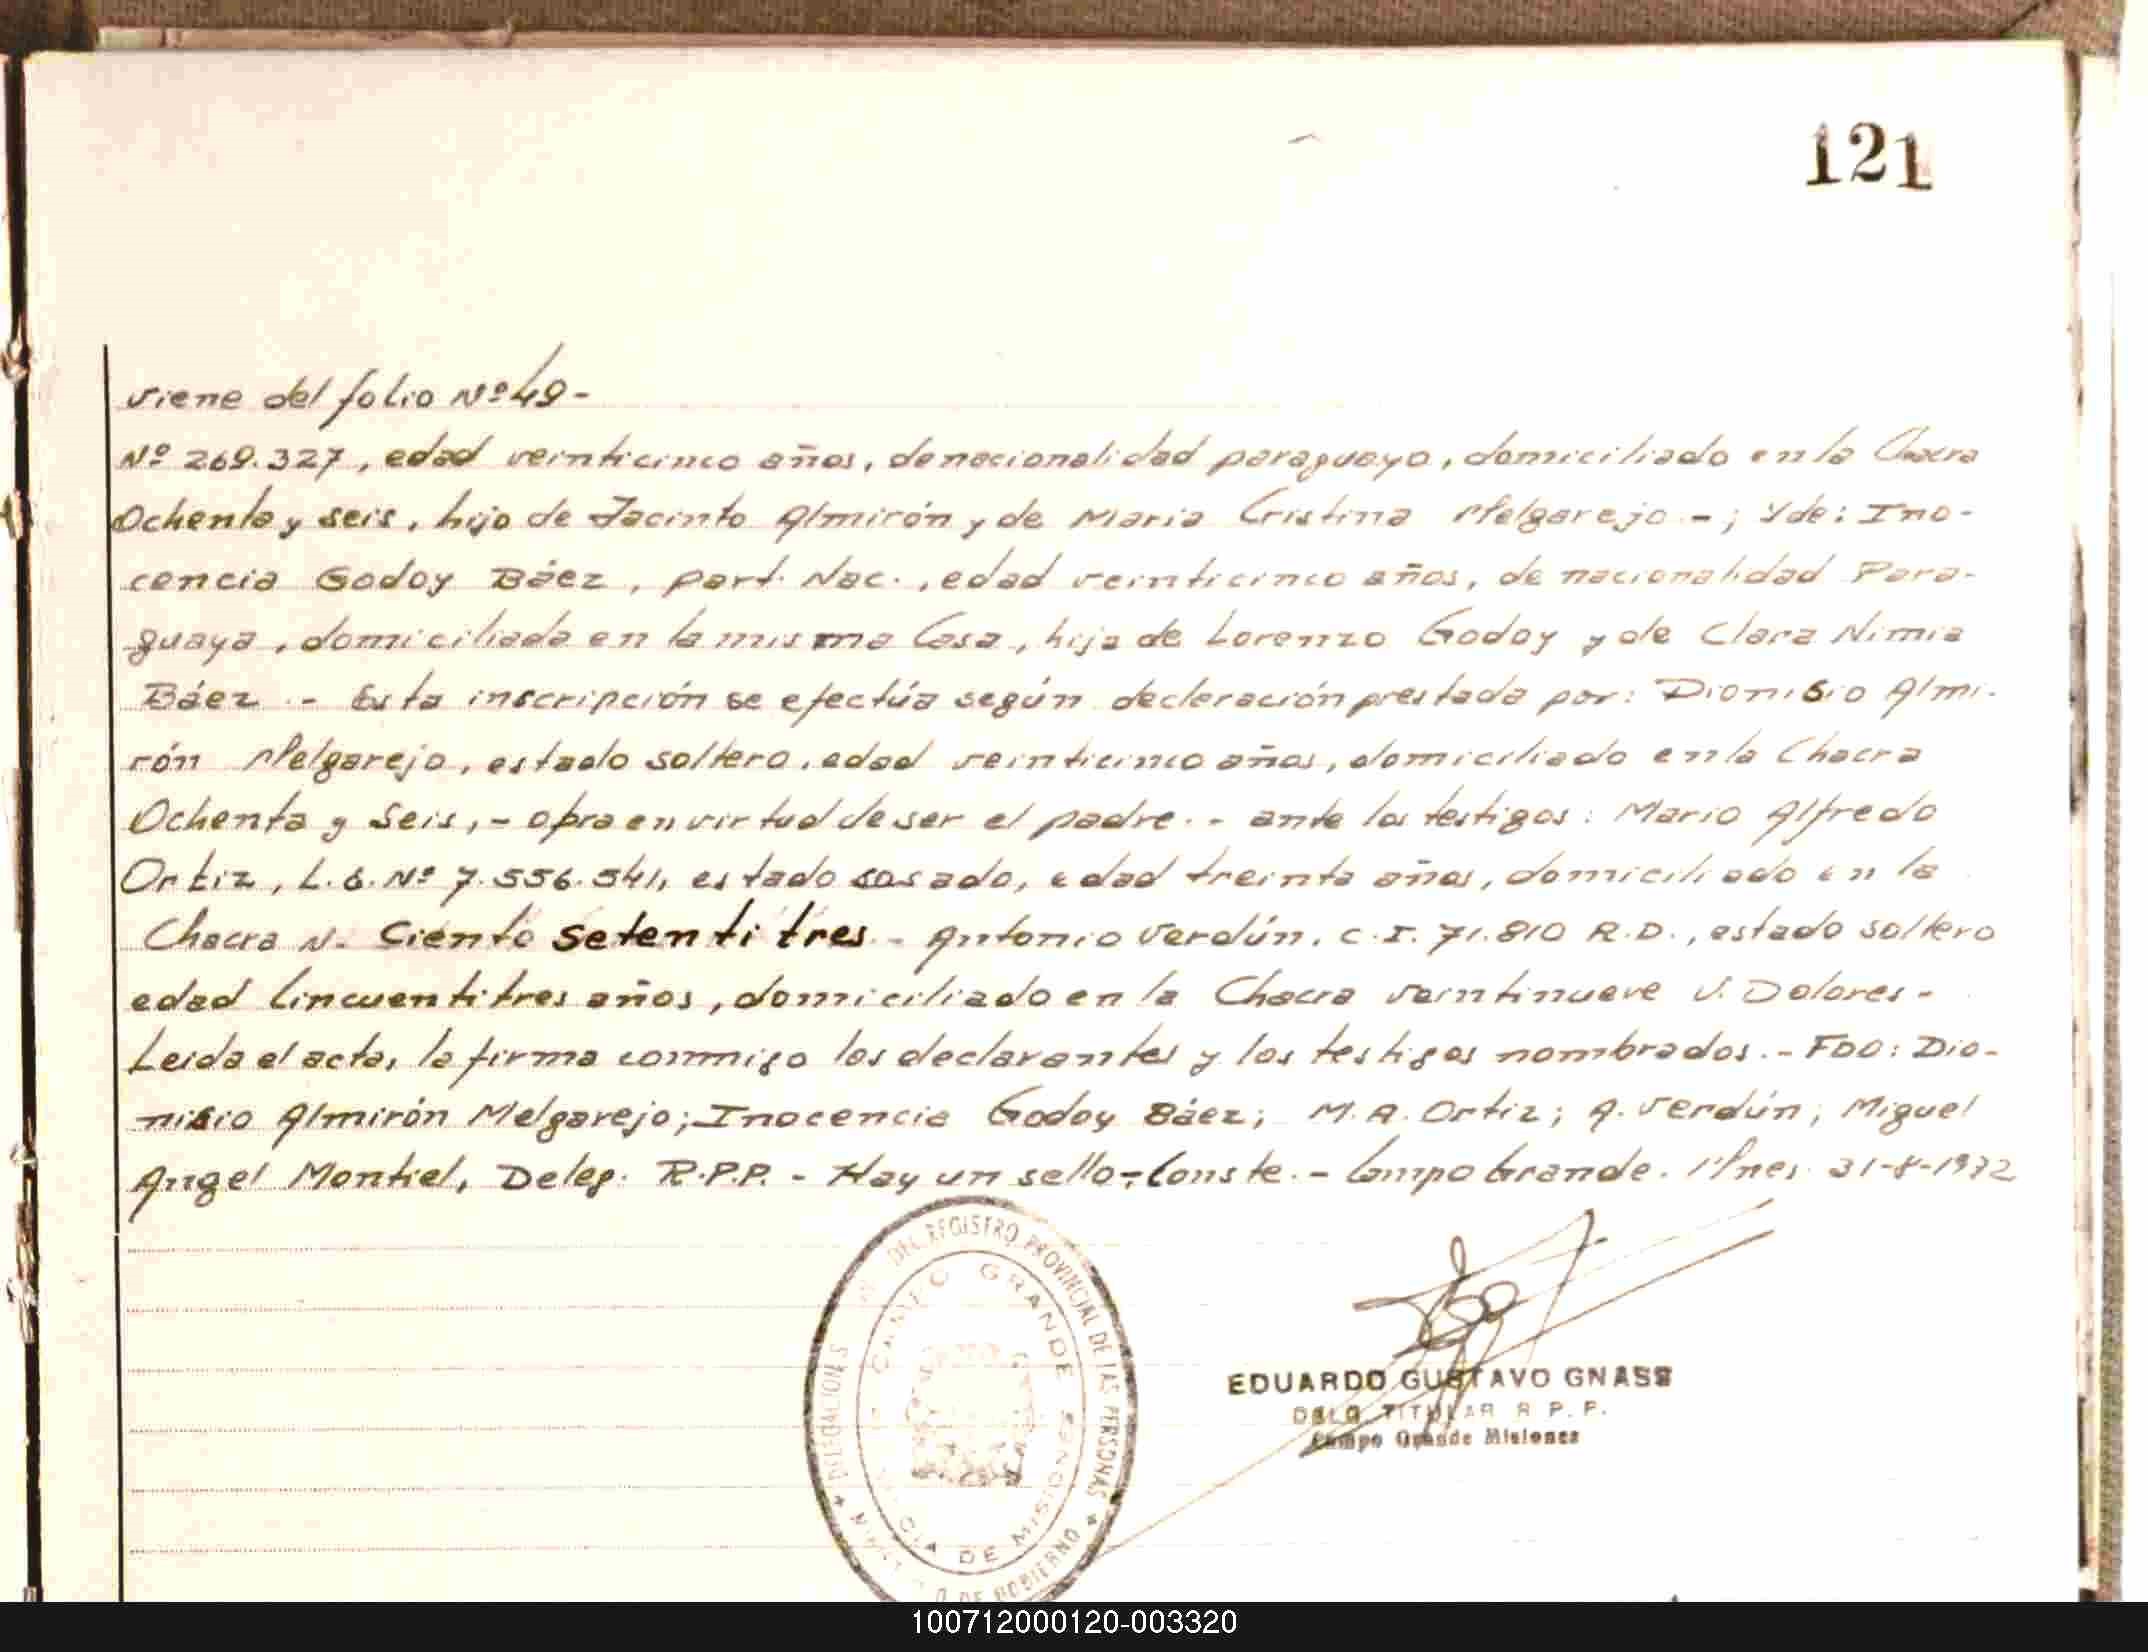 121
viene del folio Nº 49-
Nº 269.327, edad veinticinco años, de nacionalidad paraguayo, domiciliado en la Chacra
Ochenta y seis, hijo de Jacinto Almirón y de Maria Cristina Melgarejo -; Y de: Ino-
cencia Godoy Báez, part. Nac., edad veinticinco años, de nacionalidad Para-
guaya, domiciliada en la misma Casa, hija de Lorenzo Godoy y de Clara Nimia
Báez.- Esta inscripción se efectúa según declaración prestada por: Dionisio Almi-
rón Melgarejo, estado soltero, edad veinticinco años, domiciliado en la Chacra
Ochenta y Seis,- obra en virtud de ser el padre.- ante los testigos: Mario Alfredo
Ortiz, L.E. Nº 7.556.541, estado casado, edad treinta años, domiciliado en la
Chacra N- Ciento Setenti tres - Antonio Verdún, C.I. 71.810 R.D., estado soltero
edad Cincuentitres años, domiciliado en la Chacra veintinueve V. Dolores-
Leida el acta, la firma conmigo los declarantes y los testigos nombrados.- FDO: Dio-
nisio Almirón Melgarejo; Inocencia Godoy Báez; M.A. Ortiz; A. Verdún; Miguel
Angel Montiel, Deleg. R.P.P. - Hay un sello - Conste.- Campo Grande. Mnes. 31-8-1972
DELEGACIONES DEL REGISTRO PROVINCIAL DE LAS PERSONAS
CAMPO GRANDE
DE MISIONES
DE GOBIERNO
EDUARDO GUSTAVO GNASS
DELG. TITULAR R.P.P.
Campo Grande Misiones
100712000120-003320